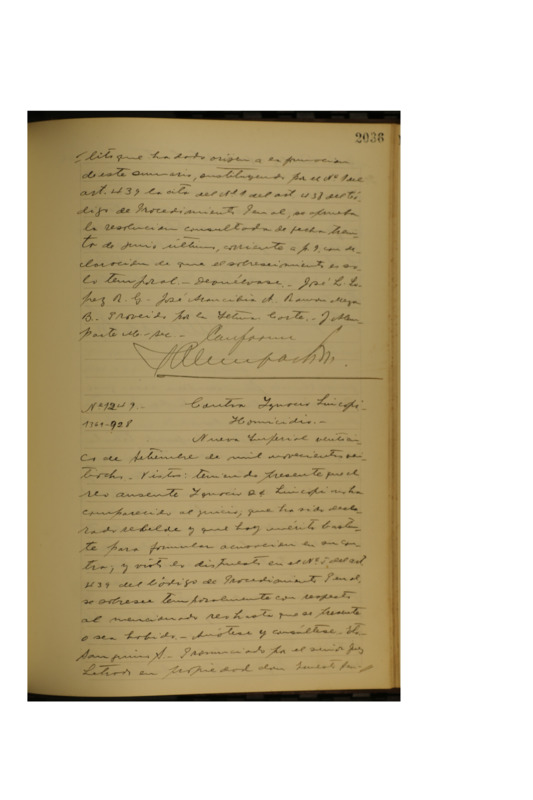 2036
lito que ha dado origen a la formacion
de este sumario, sustituyendo por el Nº 1 del
art. 439 la cita del Nº 1 del art. 438 del Có-
digo de Procedimiento Penal, se aprueba
la resolucion consultada de fecha trein-
ta de junio último, corriente a f 9, con de-
claracion de que el sobreseimiento es so-
lo temporal.- Devuélvase.- José L. Ló-
pez R. G.- José Arancibia A. Ramon Meza
B.- Proveido por la Iltma Corte.-
Conforme
Nº 1249.- Contra Ignacio
1369-928 Homicidio.-
Nueva Imperial
co de Setiembre de mil novecientos vein-
tiocho.- Vistos: teniendo presente que el
reo ausente Ignacio no ha
comparecido al juicio, que ha sido decla-
rado rebelde y que hay mérito bastan-
te para formular acusacion en su con-
tra; y visto lo dispuesto en el Nº 5 del art
439 del Código de Procedimiento Penal,
se sobresee temporalmente con respecto
al mencionado reo hasta que se presente
o sea habido.- Anótese y consúltese.-
Sanguino S.- Pronunciado por el señor Juez
Letrado en propiedad don Ernesto San-